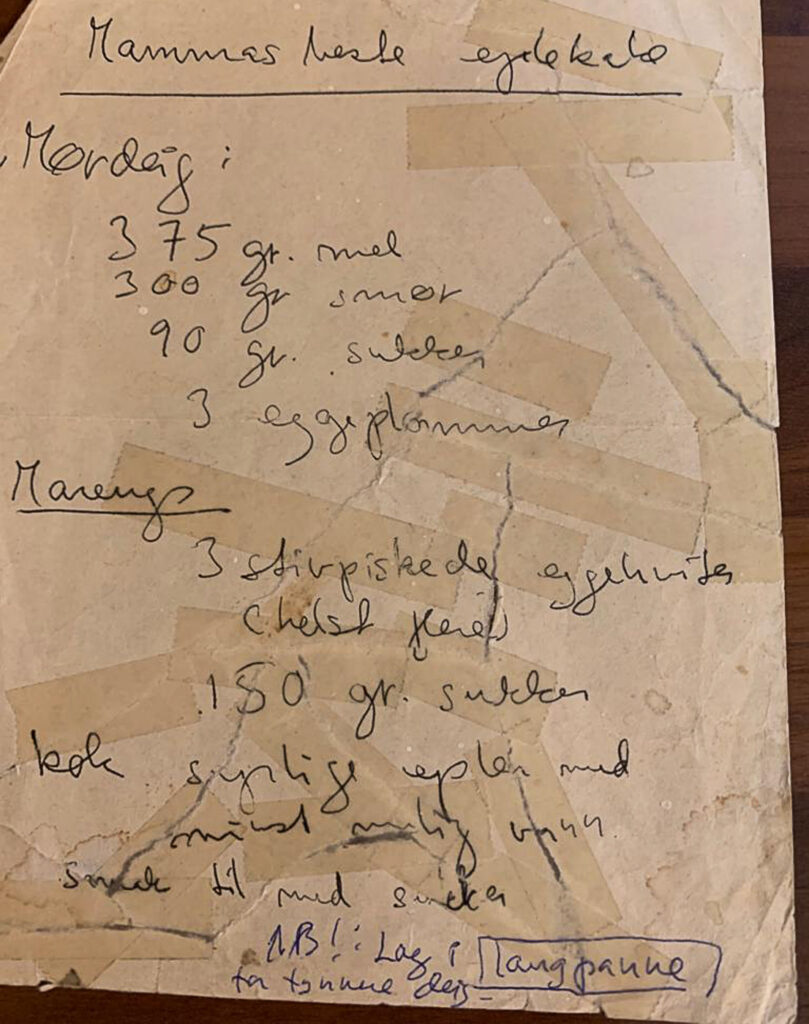 Mammas beste eplekake
Mørdeig:
375 gr. mel
300 gr smør
90 gr. sukker
3 eggeplommer
Marengs
3 stivpiskede eggehviter
(helst flere)
150 gr. sukker
kok syrlige epler med
minst mulig vann.
smak til med sukker
NB!: Lag i langpanne
for tynnere deig